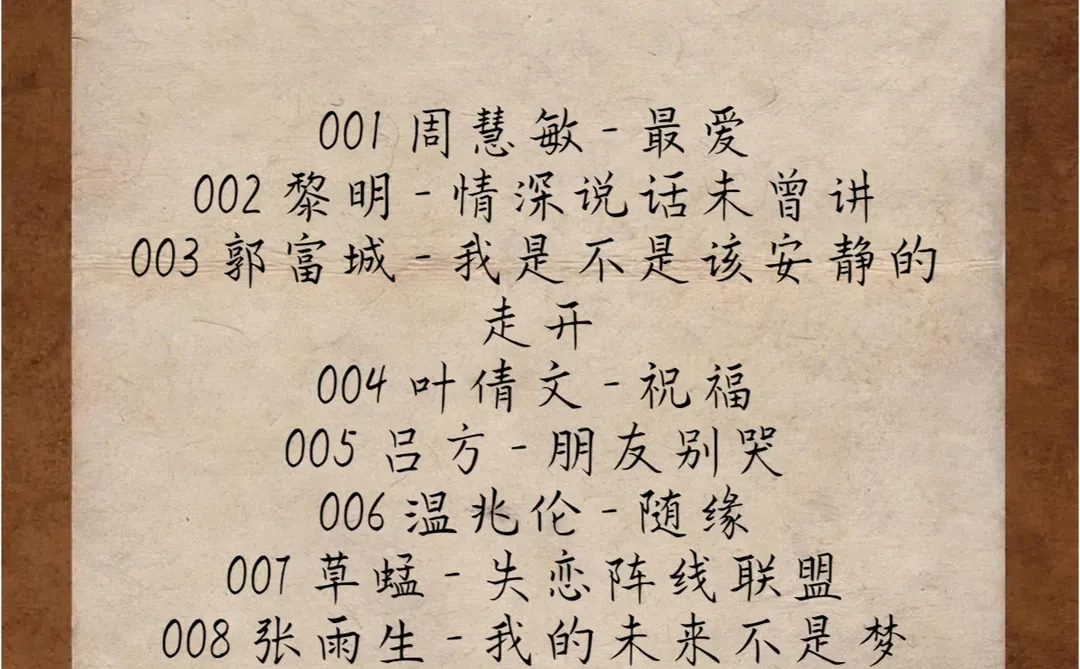 001 周慧敏 - 最爱
002 黎明 - 情深说话未曾讲
003 郭富城 - 我是不是该安静的
走开
004 叶倩文 - 祝福
005 吕方 - 朋友别哭
006 温兆伦 - 随缘
007 草蜢 - 失恋阵线联盟
008 张雨生 - 我的未来不是梦